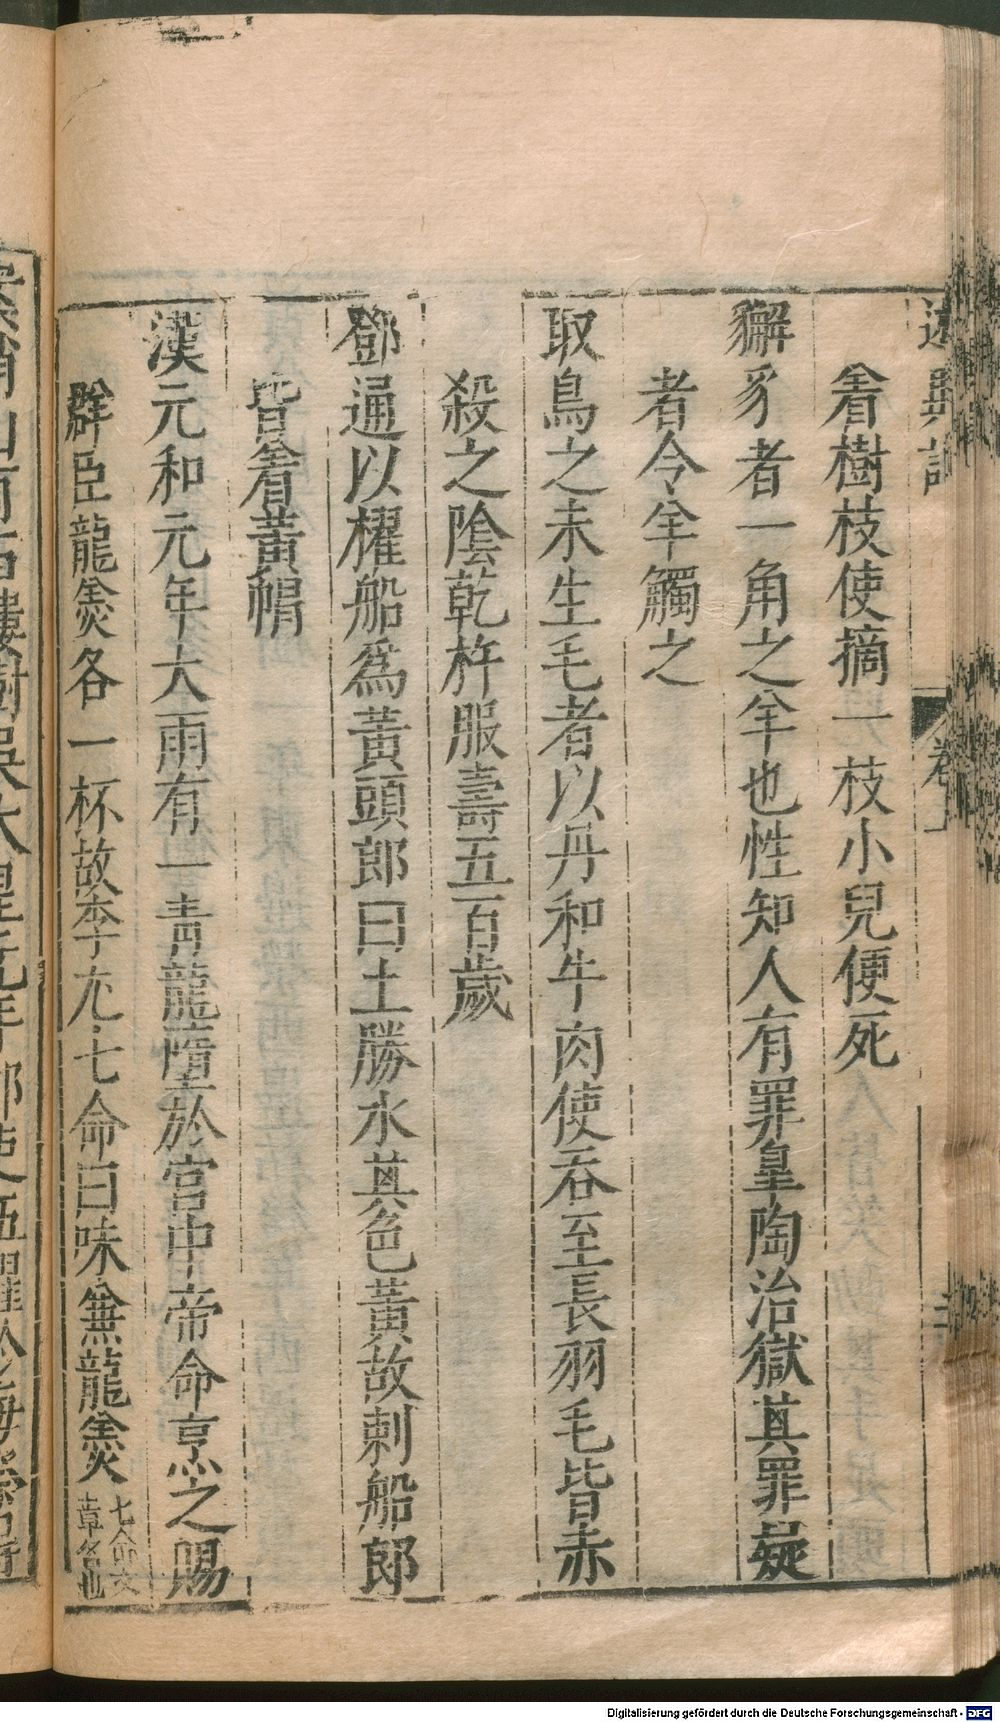 述異記 卷上
着樹枝使摘一枝小兒便死
獬豸者一角之羊也性知人有罪皇陶治獄其罪疑
者令羊觸之
取鳥之未生毛者以丹和牛肉使吞至長羽毛皆赤
殺之陰乾杵服壽五百歲
鄧通以櫂船爲黃頭郎曰土勝水其色黃故刺船郎
皆着黃帽
漢元和元年大雨有一青龍墮於宮中帝命烹之賜
群臣龍羹各一杯故李尤七命曰味兼龍羹七命文章名也
Digitalisierung gefördert durch die Deutsche Forschungsgemeinschaft - DFG